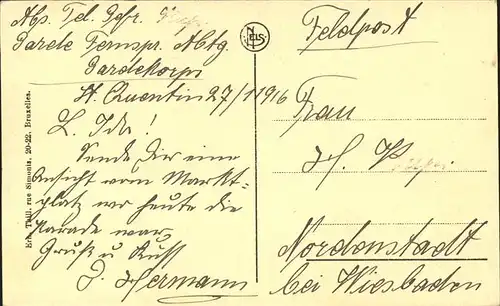 Abs. Tel. Gefr.
Garde Fernspr. Abtg.
Gardekorps
St. Quentin 27/1 1916
L. Ida!
Sende Dir eine
Ansicht vom Markt-
platz wo heute die
Parade war.
Gruß u Kuss
D. Hermann
Feldpost
Frau
H. P.
Nordenstadt
bei Wiesbaden
Ern. Thill, rue Simonis, 20-22, Bruxelles.
NELS